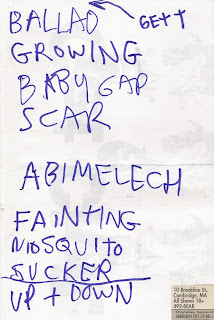 BALLAD
GETT
GROWING
BABY GAP
SCAR
ABIMELECH
FAINTING
MOSQUITO
SUCKER
UP + DOWN
10 Brookline St.
Cambridge, MA
All Shows 18+
492-BEAR